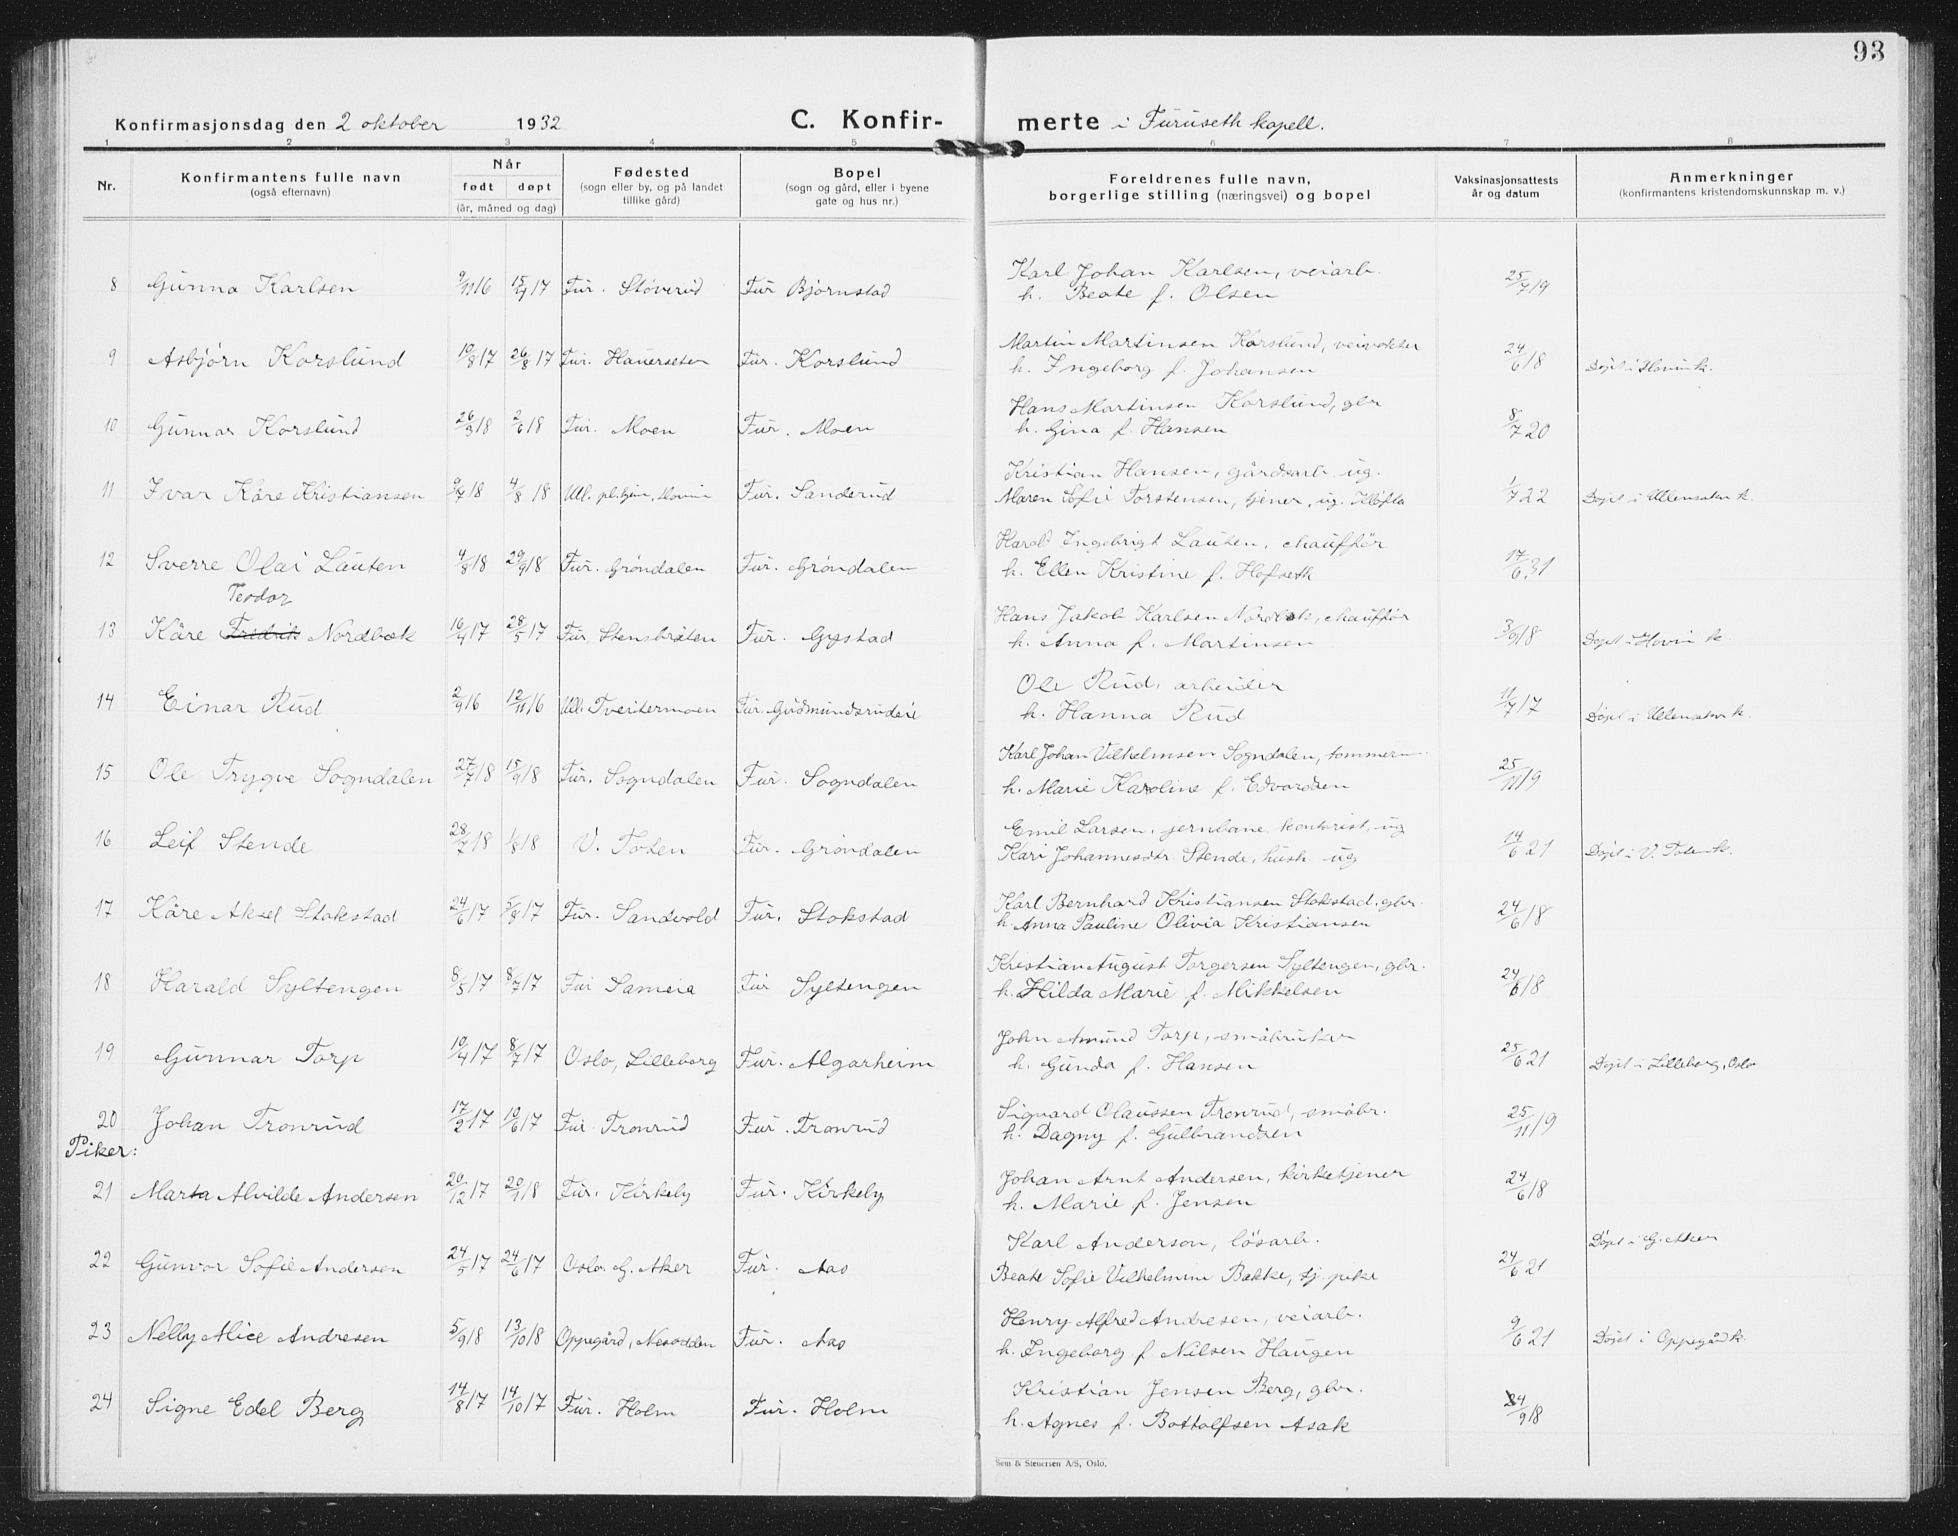 93
Konfirmasjonsdag den 2 oktober 1932 C. Konfirmerte i Furuseth kapell.
1 2 3 4 5 6 7 8
Nr. Konfirmantens fulle navn (også efternavn) Når født døpt (år, måned og dag) Fødested (sogn eller by, og på landet tillike gård) Bopel (sogn og gård, eller i byene gate og hus nr.) Foreldrenes fulle navn, borgerlige stilling (næringsvei) og bopel Vaksinasjonsattests år og datum Anmerkninger (konfirmantens kristendomskunnskap m. v.)
Karl Johan Karlsen, veiarb.
8 Gunna Karlsen 9/11 16 15/4 17 Fur. Støverud Fur Bjørnstad h. Beate f. Olsen 25/7 19
Martin Martinsen Korslund, veivokter
9 Asbjørn Korslund 10/8 17 26/8 17 Fur. Hauerseter Fur. Korslund h. Ingeborg f. Johansen 24/6 18 Døpt i Hovin k.
Hans Martinsen Korslund, gbr
10 Gunnar Korslund 26/3 18 2/6 18 Fur. Moen Fur. Moen h. Gina f. Hansen 8/7 20
Kristian Hansen, gårdsarb. ug.
11 Ivar Kåre Kristiansen 9/7 18 4/8 18 Ull. pl.hjem, Hovin Fur. Sanderud Maren Sofie Torstensen, tjener, ug. Kløfta 1/7 22 Døpt i Ullensaker k.
Harald Ingebrigt Lauten, chauffør
12 Sverre Olai Lauten 4/8 18 29/9 18 Fur. Grøndalen Fur. Grøndalen h. Ellen Kristine f. Hofseth 17/6 31
Teodor
Hans Jakob Karlsen Nordbæk, chauffør
13 Kåre Fredrik Nordbæk 16/4 17 28/5 17 Fur. Stensbråten Fur. Gystad h. Anna f. Martinsen 3/9 18 Døpt i Hovin k.
Ole Rud, arbeider
14 Einar Rud 2/9 16 12/11 16 Ull. Tveitermoen Fur. Gudmundsrudeie h. Hanna Rud 11/7 17 Døpt i Ullensaker k.
Karl Johan Vilhelmsen Sogndalen, tømmerm
15 Ole Trygve Sogndalen 27/7 18 15/9 18 Fur. Sogndalen Fur. Sogndalen h. Marie Karoline f. Edvardsen 25/11 19
Emil Larsen, jernbane kontorist, ug
16 Leif Stende 28/7 18 1/8 18 V. Toten Fur. Grøndalen Kari Johannesdtr. Stende, hush. ug 14/6 21 Døpt i V. Toten k.
Karl Bernhard Kristiansen Stokstad, gbr.
17 Kåre Aksel Stokstad 24/6 17 5/8 17 Fur. Sandvold Fur. Stokstad h. Anna Pauline Olivia Kristiansen 24/6 18
Kristian August Torgersen Syltengen, gbr.
18 Harald Syltengen 8/5 17 8/7 17 Fur Sameia Fur Syltengen h. Hilda Marie f. Mikkelsen 24/6 18
John Amund Torp, småbruker
19 Gunnar Torp 10/4 17 8/7 17 Oslo, Lilleborg Fur. Algarheim h. Gunda f. Hansen 25/6 21 Døpt i Lilleborg, Oslo
Sigvard Olaussen Tronrud, småbr.
20 Johan Tronrud 17/2 17 10/6 17 Fur Tronrud Fur. Tronrud h. Dagny f. Gulbrandsen 25/11 19
Piker:
Johan Arnt Andersen, kirketjener
21 Marta Alvilde Andersen 20/12 17 20/1 18 Fur. Kirkeby Fur. Kirkeby h. Marie f. Jensen 24/6 18
Karl Anderson, løsarb. Døpt i G. Aker
22 Gunvor Sofie Andersen 24/5 17 24/6 17 Oslo. G. Aker Fur. Aas Beate Sofie Vilhelmine Bakke, tj. pike 24/6 21
Henry Alfred Andresen, veiarb.
23 Nelly Alice Andresen 5/9 18 13/10 18 Oppegård, Nesodden Fur. Aas h. Ingeborg f. Nilsen Haugen 9/6 21 Døpt i Oppegård k.
Kristian Jensen Berg, gbr.
24 Signe Edel Berg 14/8 17 14/10 17 Fur. Holm Fur. Holm h. Agnes f. Bottolfsen Asak 24/9 18
Sem & Stenersen A/S, Oslo.